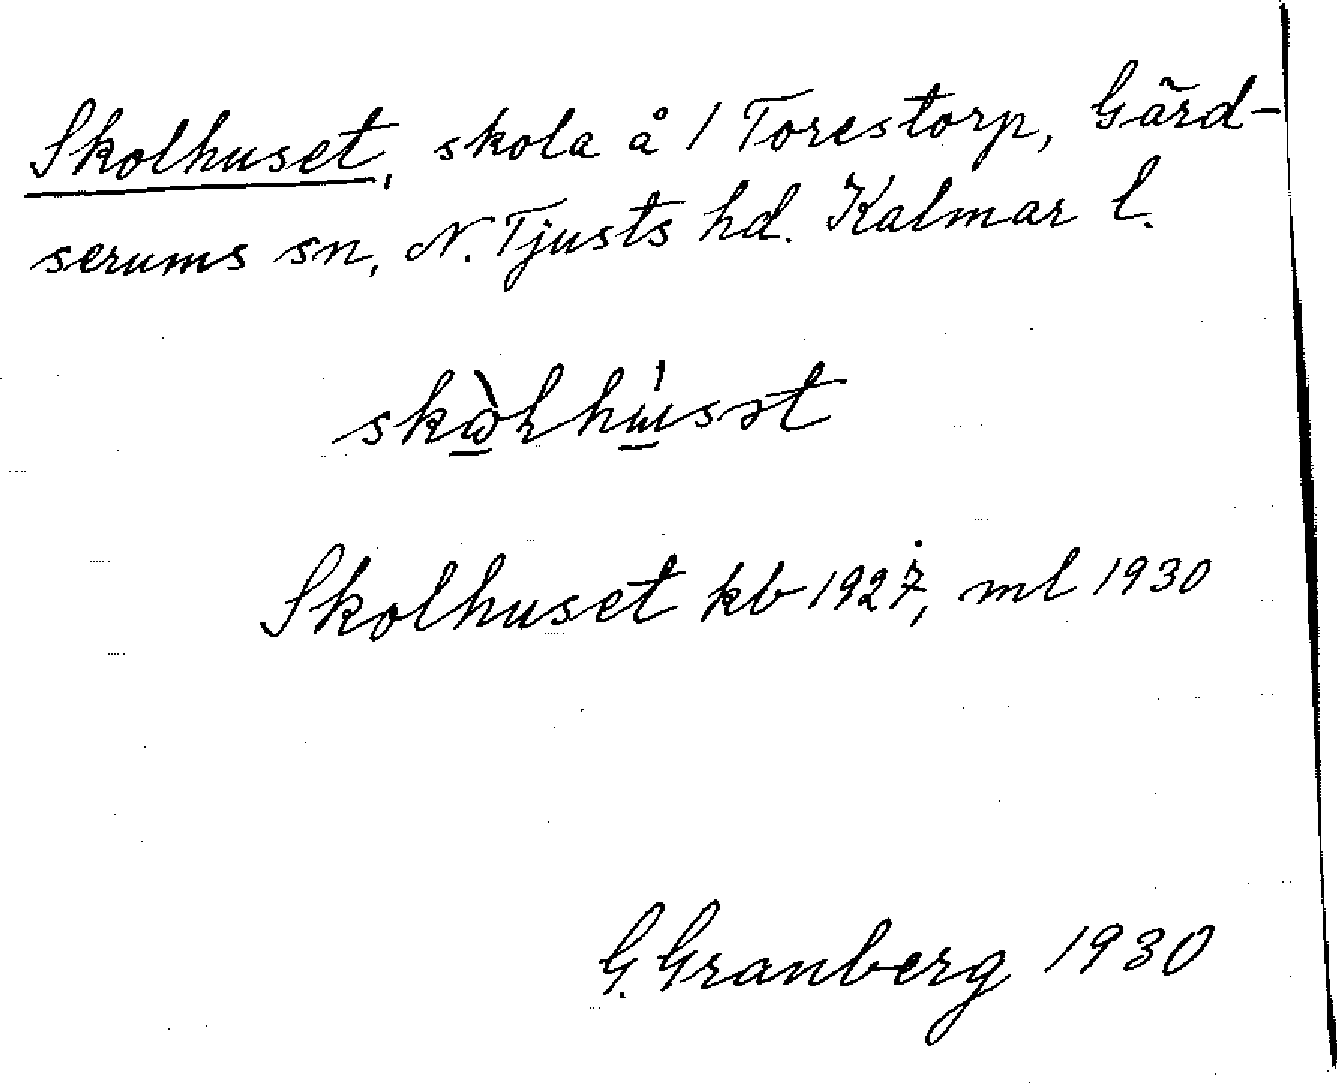 Skolhuset, skola å 1 Torestorp, Gärd-
serums sn, N. Tjusts hd. Kalmar l.
skὼlhɯ́sət
Skolhuset kb 1927, ml 1930
G. Granberg 1930